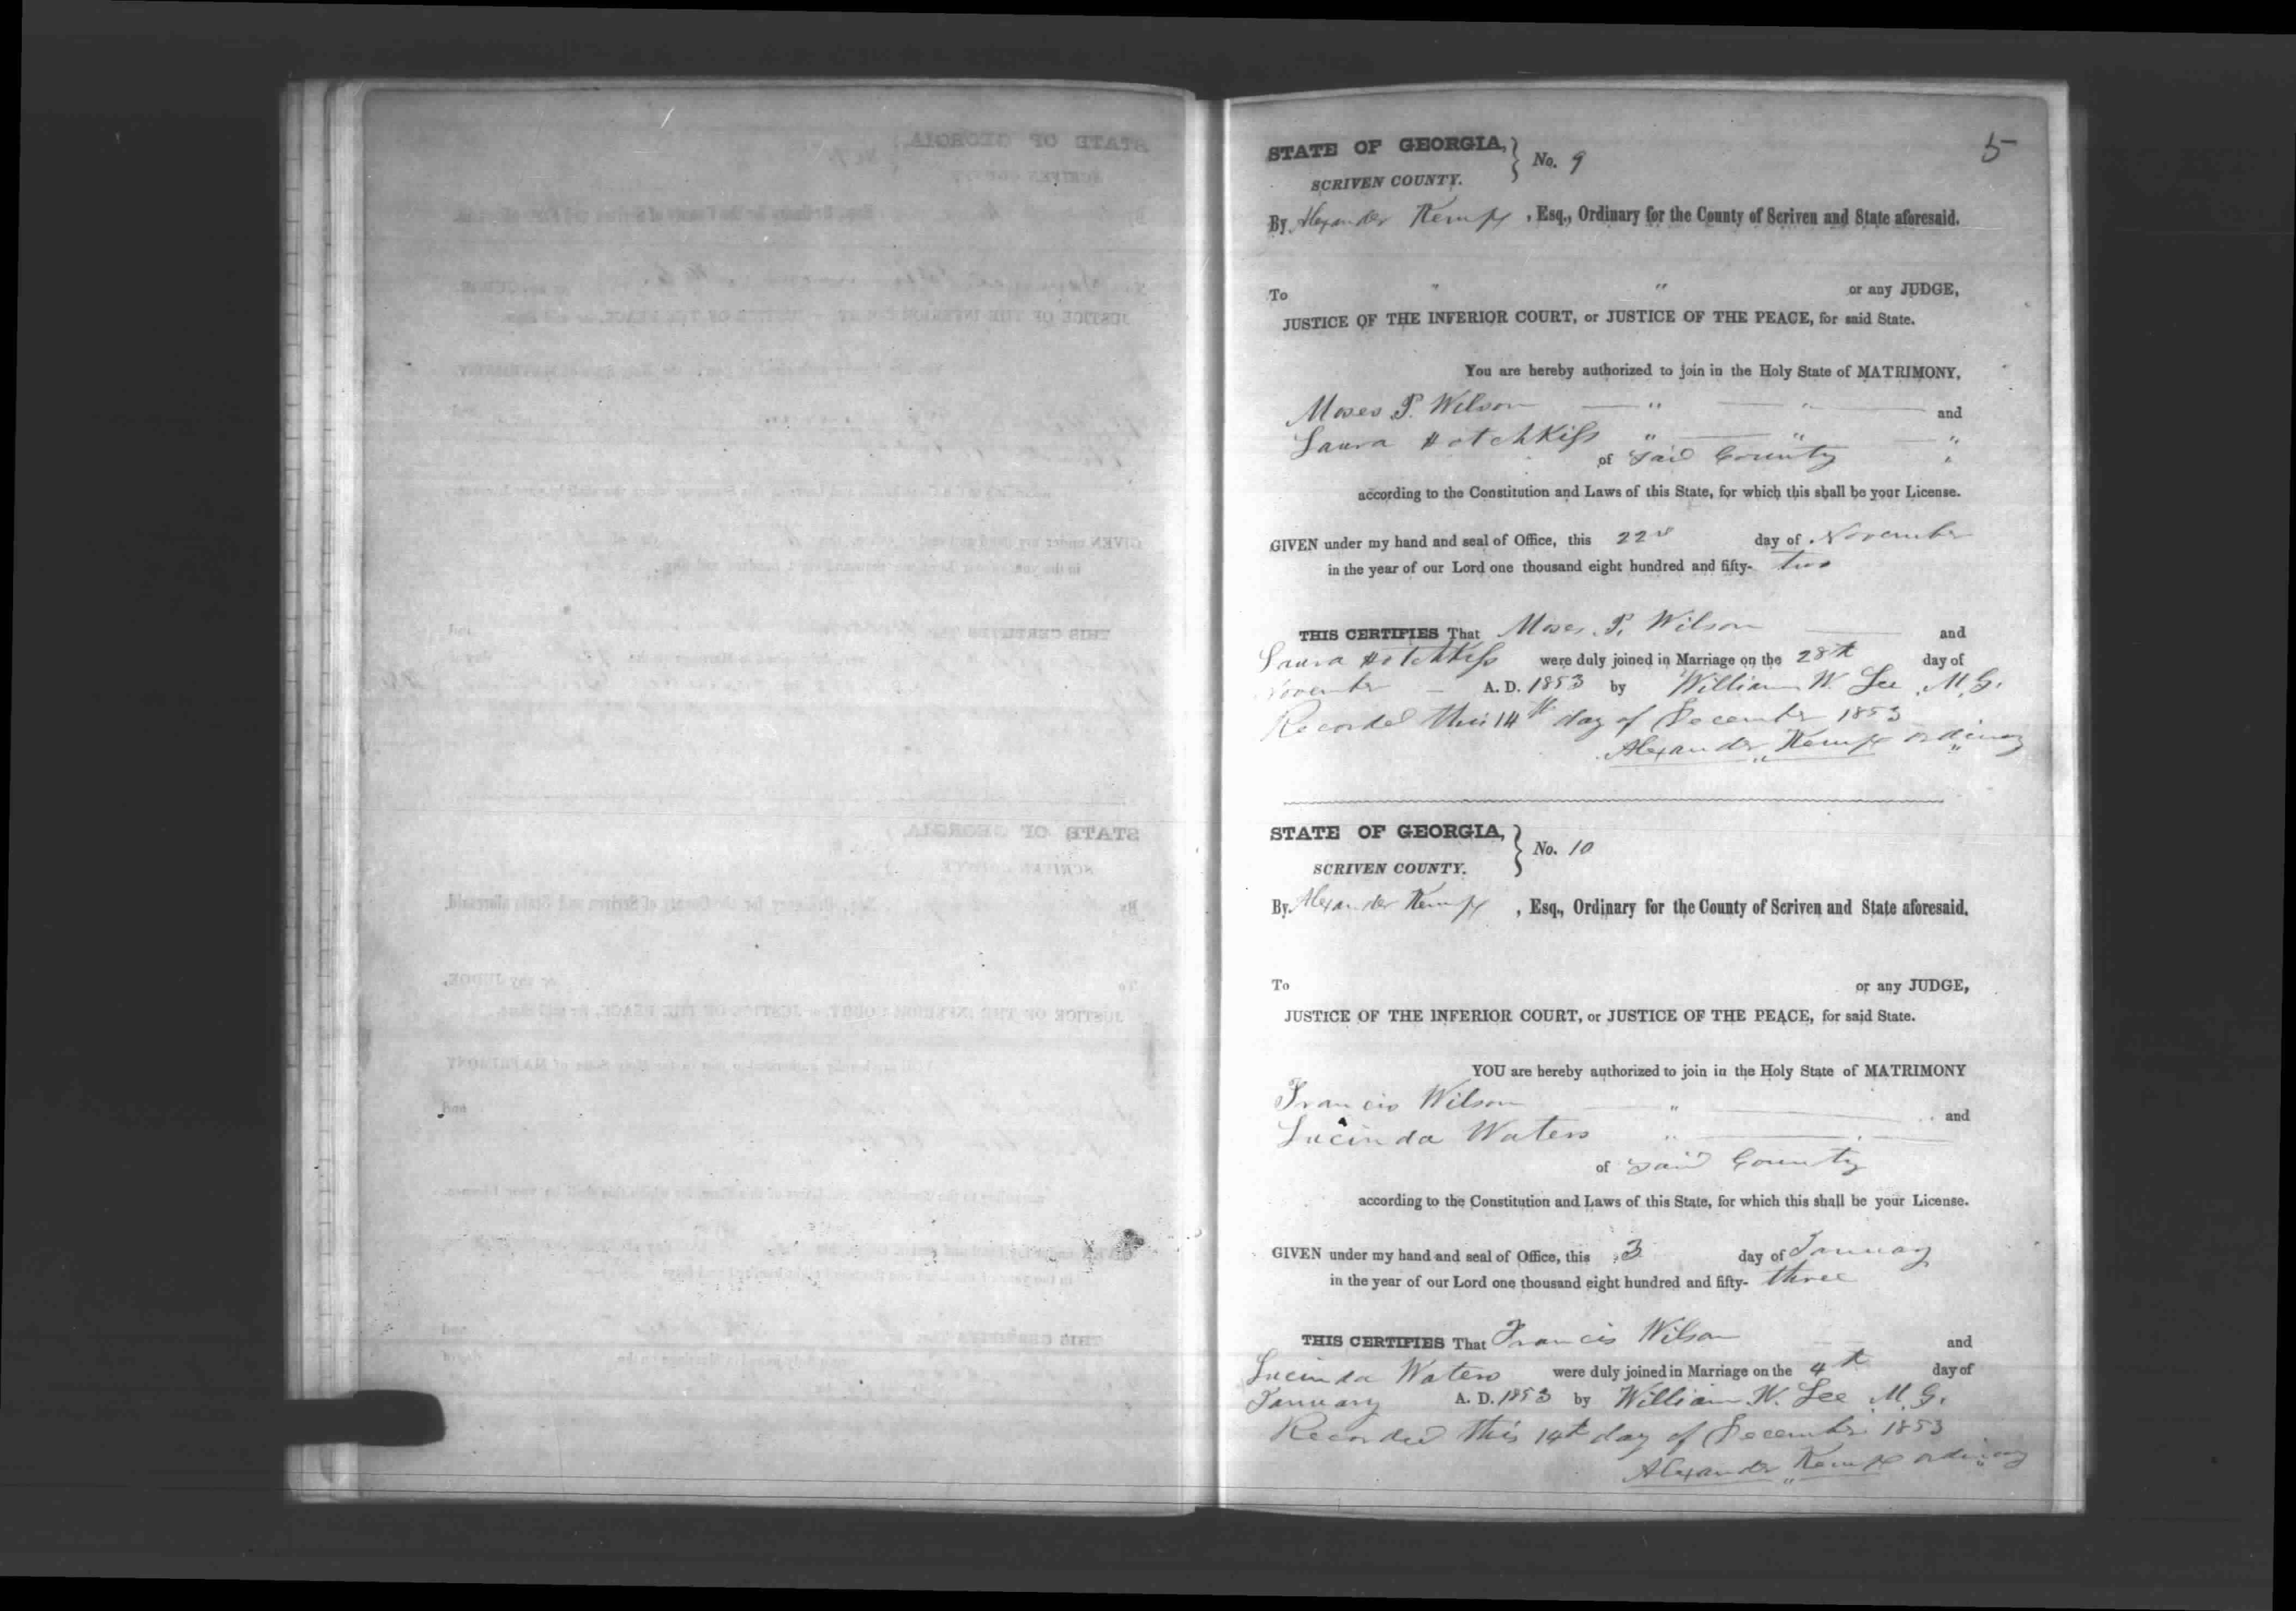 5
STATE OF GEORGIA, } No. 9
SCRIVEN COUNTY.
By Alexander Kemp , Esq., Ordinary for the County of Scriven and State aforesaid.
To " " or any JUDGE,
JUSTICE OF THE INFERIOR COURT, or JUSTICE OF THE PEACE, for said State.
You are hereby authorized to join in the Holy State of MATRIMONY,
Moses P. Wilson — " — " — and
Laura Hotchkiss " — " — "
of Said County "
according to the Constitution and Laws of this State, for which this shall be your License.
GIVEN under my hand and seal of Office, this 22d day of November
in the year of our Lord one thousand eight hundred and fifty- two
THIS CERTIFIES That Moses P. Wilson — and
Laura Hotchkiss were duly joined in Marriage on the 28th day of
November – A. D. 1853 by William W. Lee M.G.
Recorded this 14th day of December 1853
Alexander Kemp ordinary
STATE OF GEORGIA, } No. 10
SCRIVEN COUNTY.
By Alexander Kemp , Esq., Ordinary for the County of Scriven and State aforesaid.
To or any JUDGE,
JUSTICE OF THE INFERIOR COURT, or JUSTICE OF THE PEACE, for said State.
YOU are hereby authorized to join in the Holy State of MATRIMONY
Francis Wilson — " — and
Lucinda Waters " —
of Said County
according to the Constitution and Laws of this State, for which this shall be your License.
GIVEN under my hand and seal of Office, this 3 day of January
in the year of our Lord one thousand eight hundred and fifty- three
THIS CERTIFIES That Francis Wilson and
Lucinda Waters were duly joined in Marriage on the 4th day of
January A. D. 1853 by William W. Lee M.G.
Recorded this 14th day of December 1853
Alexander Kemp ordinary